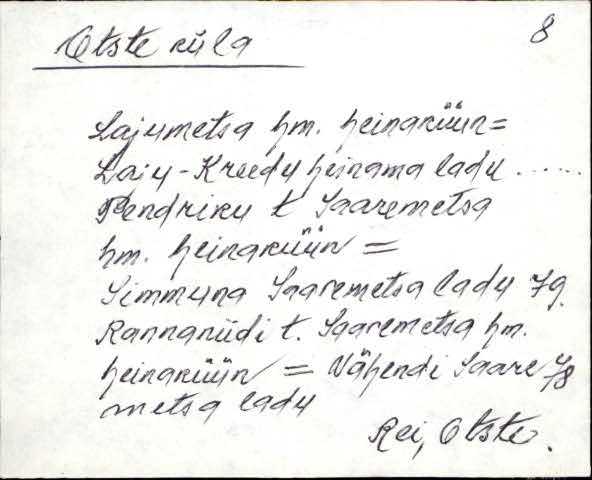 Otste küla
8
Lajumetsa hm. heinaküün=
Laiu-Kreedu heinama ladu ......
Pendriku t Saaremetsa
hm. heinaküün =
Simmuna Saaremetsa ladu 79.
Rannaniidi t. Saaremetsa hm.
heinaküün = Nähendi Saare 78
metsa ladu
Rei, Otste.